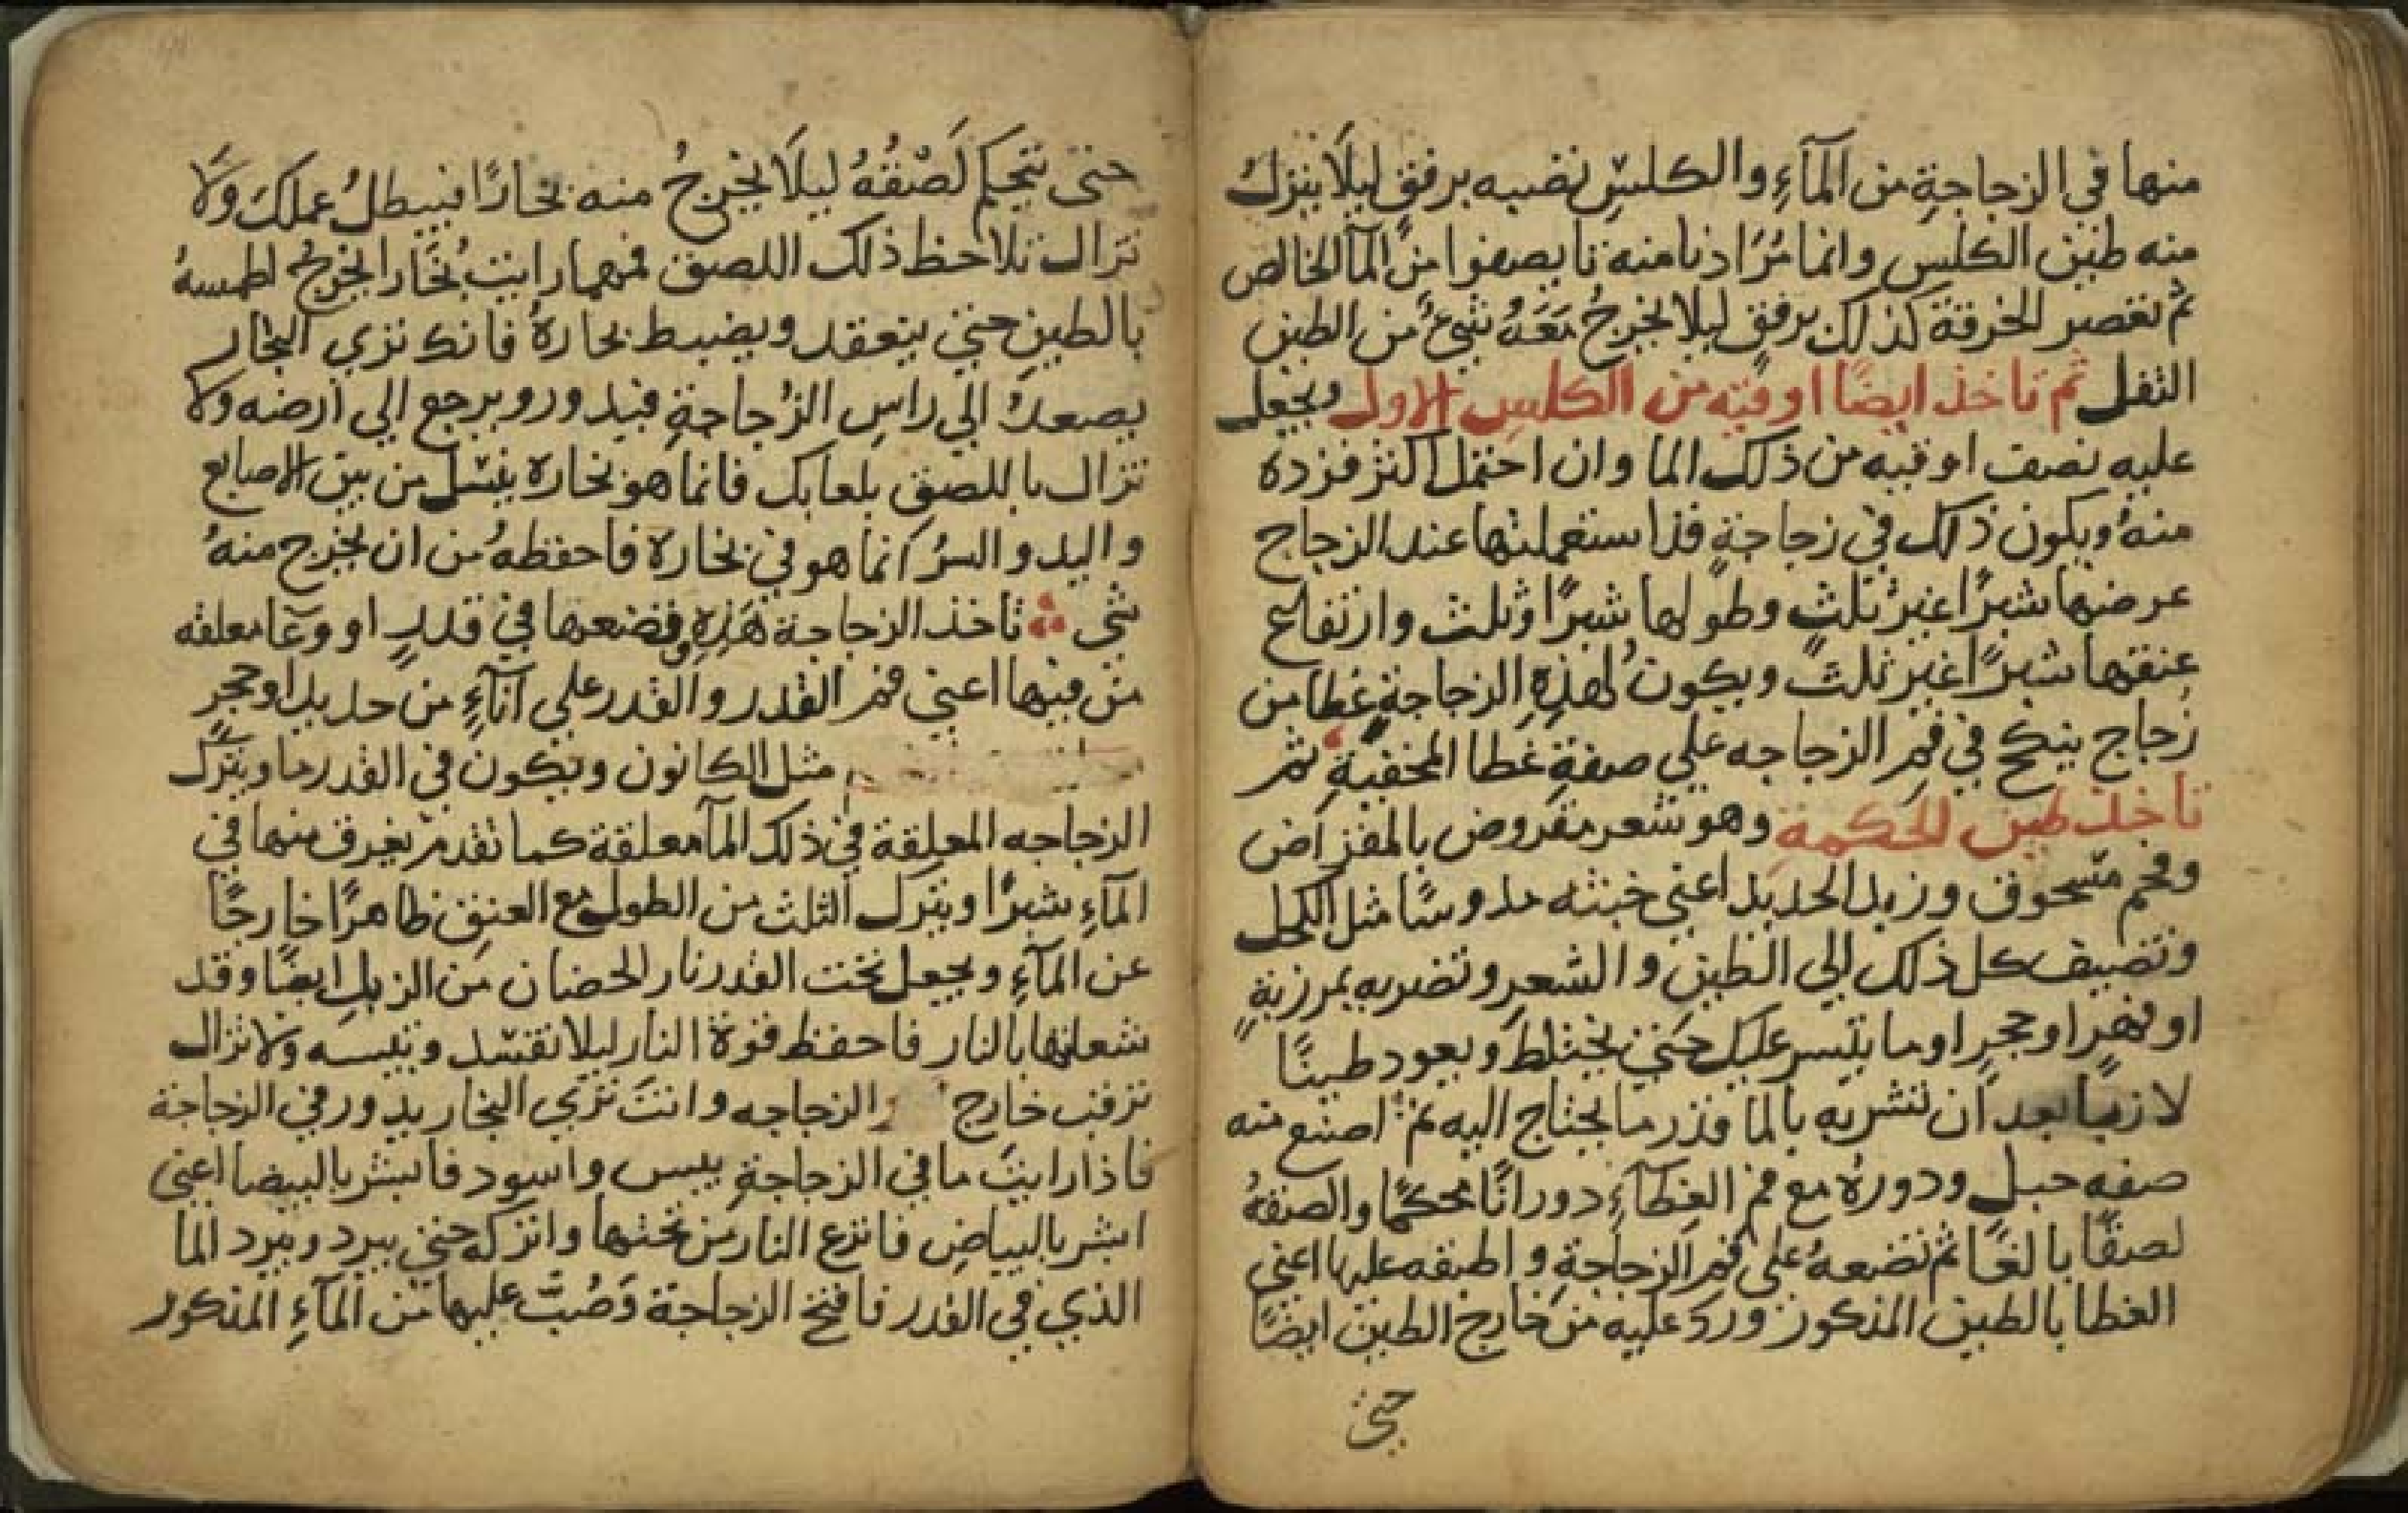 منها في الزجاجةِ من المآءِ والكلسِ تصبه برفقٍ ليلَا ينزلُ
منه طين الكلسِ وانما مُرَادنا منه تا يصفوا من المآ الخالص
ثم تعصر الخرقة كذلك برفقٍ ليلا يخرجُ مَعَهُ شيءٌ من الطين
الثفل ثم تاخذ ايضًا اوقيّه من الكلسِ الاول ويجعل
عليهِ نصف اوقيه من ذلك الما وان احتمل اكثر فزده
منهُ ويكون ذلك في زجاجةٍ قد استعملتها عند الزجاج
عرضها شبرًا غيرُ ثلثٍ وطولها شبرًا وثلث وارتفاع
عنقها شبرًا غير ثلثٍ ويكونُ لهذهِ الزجاجةِ غطا من
زُجاج ينكح في فمِ الزجاجه علي صفةِ غطا المخفيةِ ثم
تاخذ طين الحكمةِ وهو شعر مقروض بالمقراض
وفحم مسحوق وزبد الحديد اعني خبثه مدوسًا مثل الكحل
وتضيف كل ذلك الي الطين والشعرِ وتضربه بمرزبةٍ
او فهرٍ او حجرٍ او ما يتيسر عليك حتي يختلطَ ويعود طينًا
لازبًا بعد ان تشربه بالما قدر ما يحتاج اليه ثم اصنع منه
صفه حبل ودورهُ مع فم الغِطآءِ دورانًا محكمًا والصقهُ
لصقًا بالغًا ثم تضعهُ علي فم الزجاجةِ واطبقه عليها اعني
الغطا بالطين المذكور ورد عليه من خارج الطين ايضًا
حتي
حتي تحكم لَصْقُهُ ليلَا يخرجُ منه بخارًا فيبطلُ عملكَ ولَا
تزال تلاحظ ذلك اللصق فمهما رايت بُخَارا يخرجُ اطمسهُ
بالطينِ حتي ينعقد ويضبط بخارهُ فانك تري البخار
يصعدُ الي راسِ الزُجاجةِ فيدور ويرجع الي ارضه ولا
تزال باللصقِ بلعابك فانما هو بخاره ينسل من بين الاصابع
واليد والسرُ انما هو في بخاره فاحفظهُ من ان يخرج منهُ
شي ثم تاخذ الزجاجة هَذِهِ فضعها في قدرٍ او وعَا معلقه
من فيها اعني فم القدر والقدر علي انآءٍ من حديد او حجرٍ
مثل الكانون ويكون في القدر ما ويترك
الزجاجه المعلقة في ذلك المآ معلقة كما تقدم يغرق منها في
المآءِ شبرًا ويترك الثلث من الطول مع العنق ظاهرًا خارجًا
عن المآءِ ويجعل تحت القدر نار الحضان من الزبلِ ايضًا وقد
شعلتها بالنار فاحفظ قوة النار ليلا تفسد وتيبسه ولا تزال
ترقب خارج الزجاجه وانتَ تري البخار يدور في الزجاجة
فاذا رايتَ ما في الزجاجةِ يبس واسود فابشر بالبيضا اعني
ابشر بالبياضِ فانزع النار من تحتها واتركه حتي يبرد ويبرد الما
الذي في القدر فافتح الزجاجة وَصُبّ عليها من المآءِ المذكور